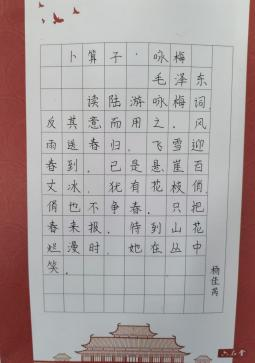 卜算子·咏梅
毛泽东
读陆游咏梅词,
反其意而用之。风
雨送春归，飞雪迎
春到，已是悬崖百
丈冰，犹有花枝俏
俏也不争春，只把
春来报，待到山花
烂漫时，她在丛中
笑。
杨佳芮
六品堂